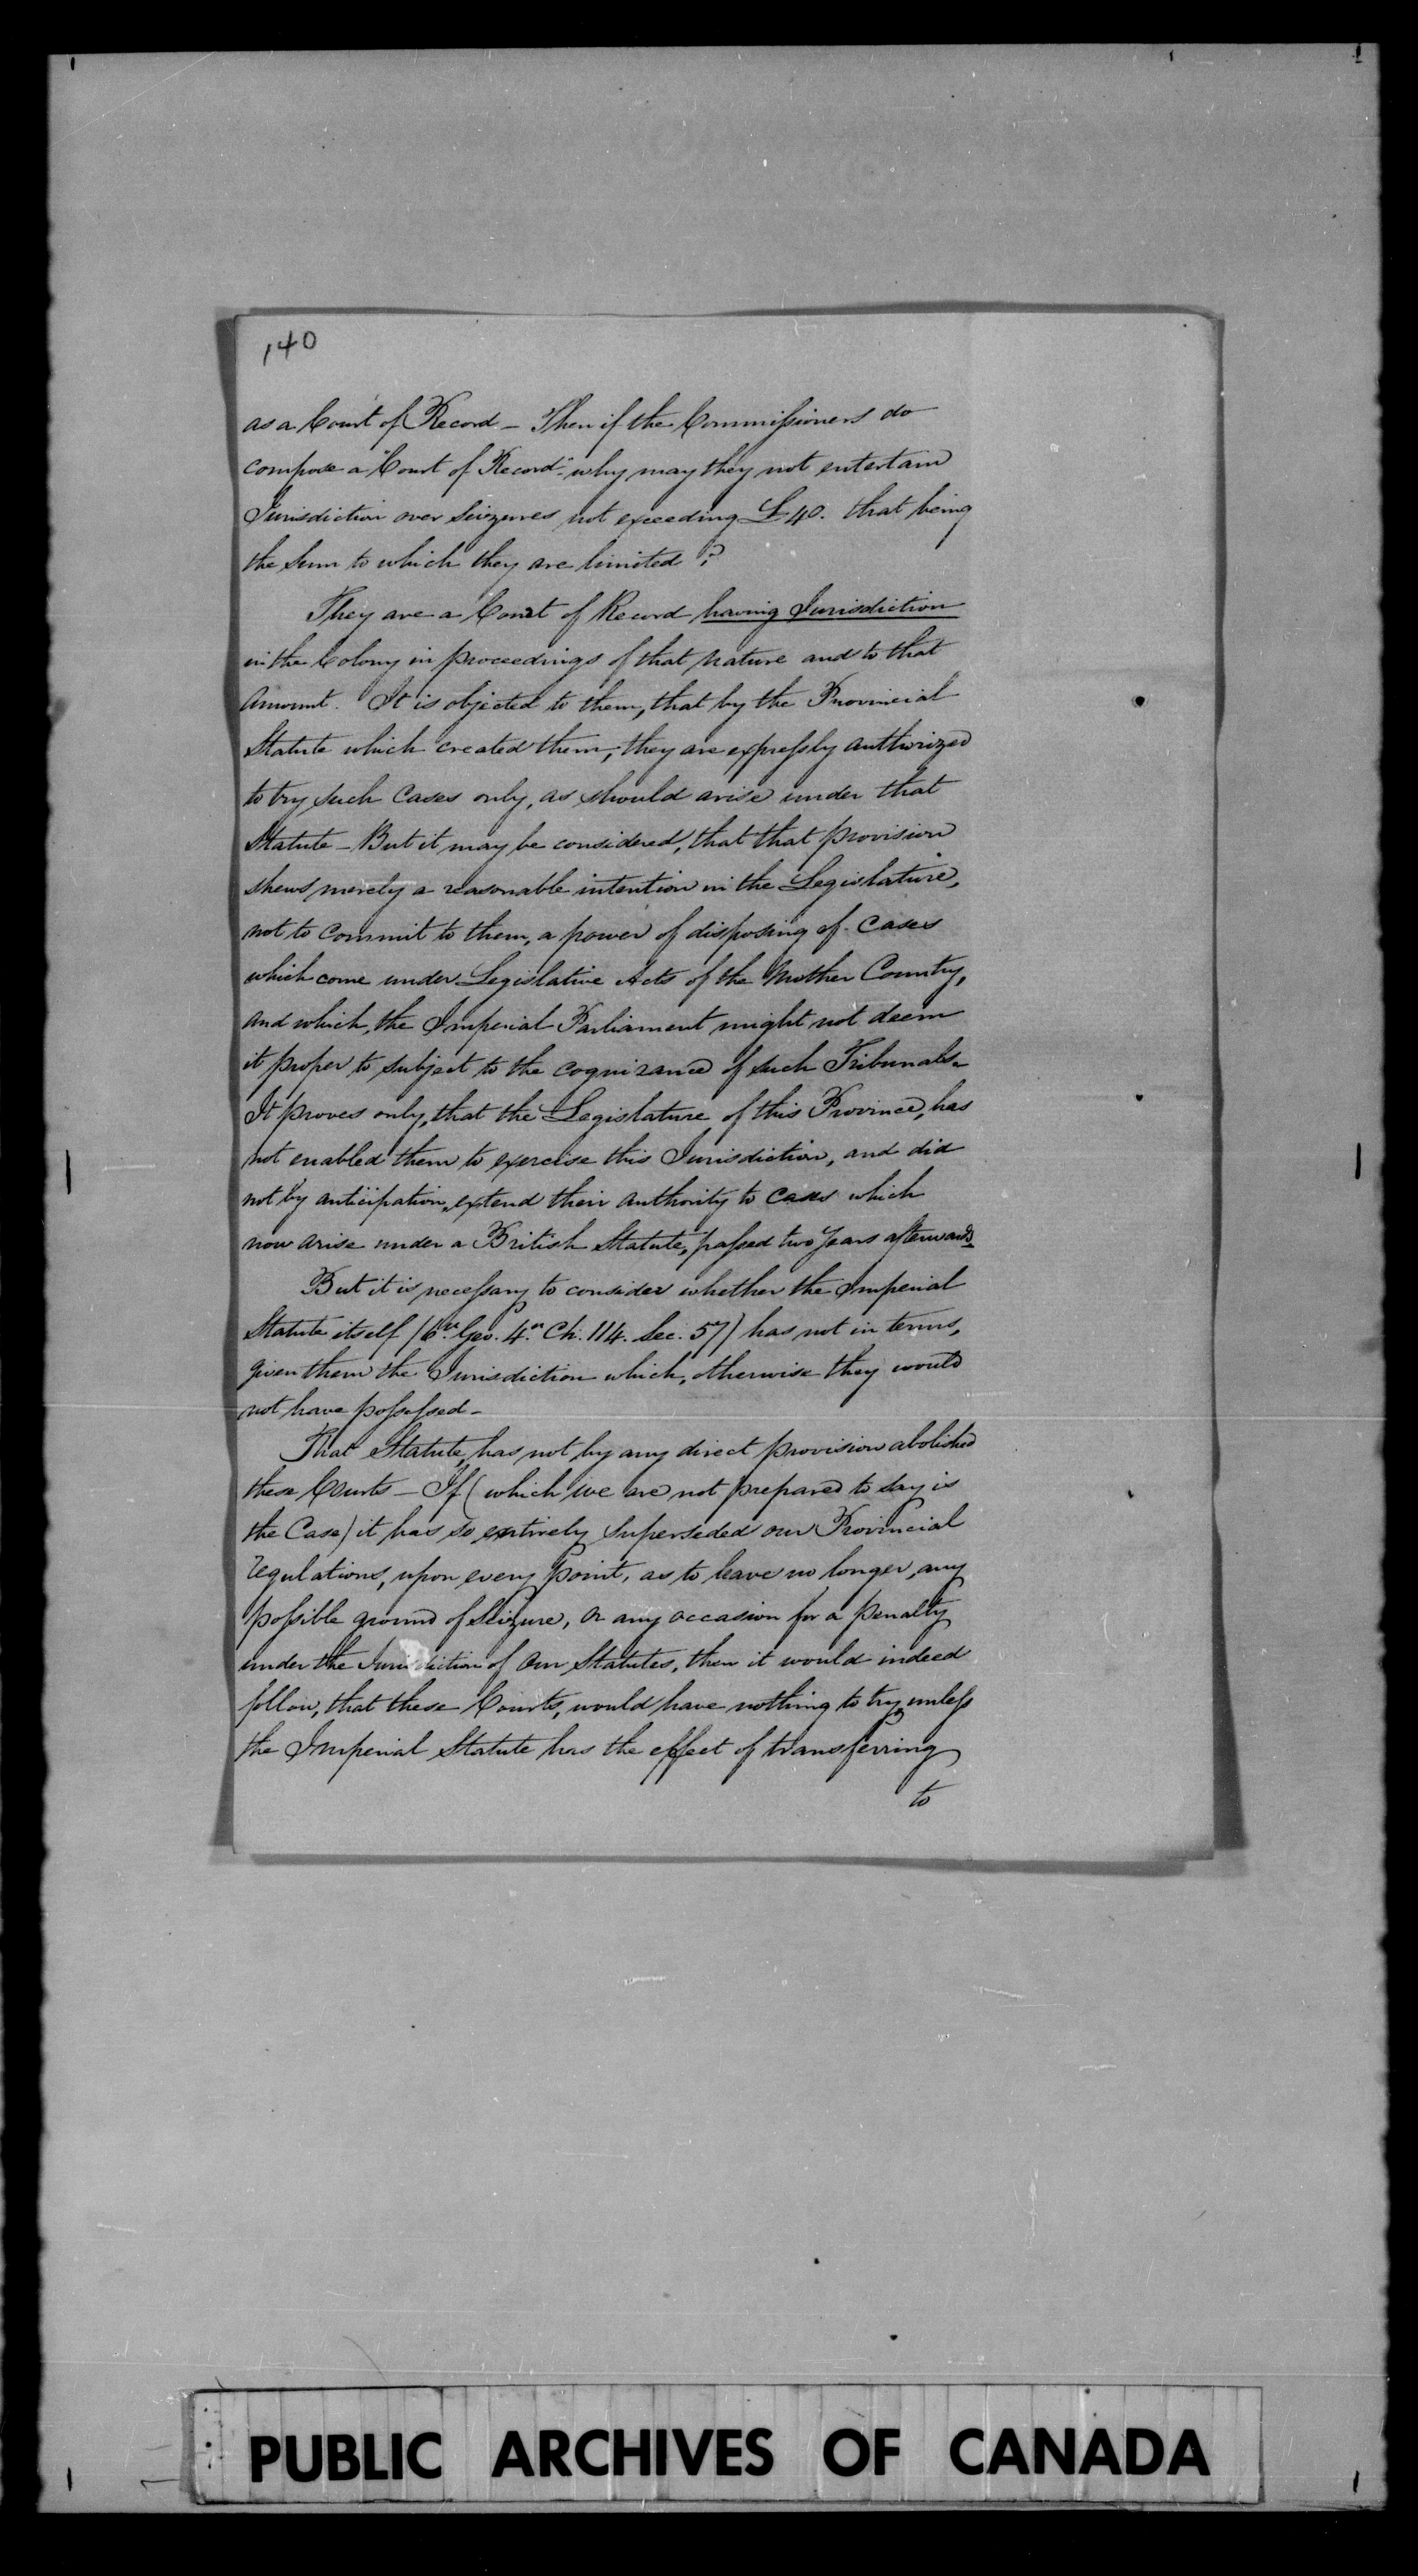 140
as a Court of Record – Then if the Commissioners do
compose a "Court of Record" – why may they not entertain
Jurisdiction over Seizures not exceeding £40. that being
the Sum to which they are limited ?
They are a Court of Record having Jurisdiction
in the Colony in proceedings of that nature and to that
Amount. It is objected to them, that by the Provincial
Statute which created them, they are expressly authorized
to try such Cases only, as should arise under that
Statute – But it may be considered, that that provision
shews merely a reasonable intention in the Legislature,
not to commit to them, a power of disposing of Cases
which come under Legislative Acts of the Mother Country,
and which, the Imperial Parliament might not deem
it proper to subject to the cognizance of such Tribunals –
It proves only, that the Legislature of this Province, has
not enabled them to exercise this Jurisdiction, and did
not by anticipation, extend their authority to cases which
now arise under a British Statute, passed two years afterwards
But it is necessary to consider whether the Imperial
Statute itself (6th Geo. 4th Ch. 114. Sec. 57) has not in terms,
given them the Jurisdiction which, otherwise they would
not have possessed –
That Statute, has not by any direct provision abolished
these Courts – If (which we are not prepared to say is
the Case) it has so entirely superseded our Provincial
regulations, upon every point, as to leave no longer, any
possible ground of Seizure, or any occasion for a penalty
under the Jurisdiction of our Statutes, then it would indeed
follow, that these Courts, would have nothing to try, unless
the Imperial Statute has the effect of transferring
to
PUBLIC ARCHIVES OF CANADA